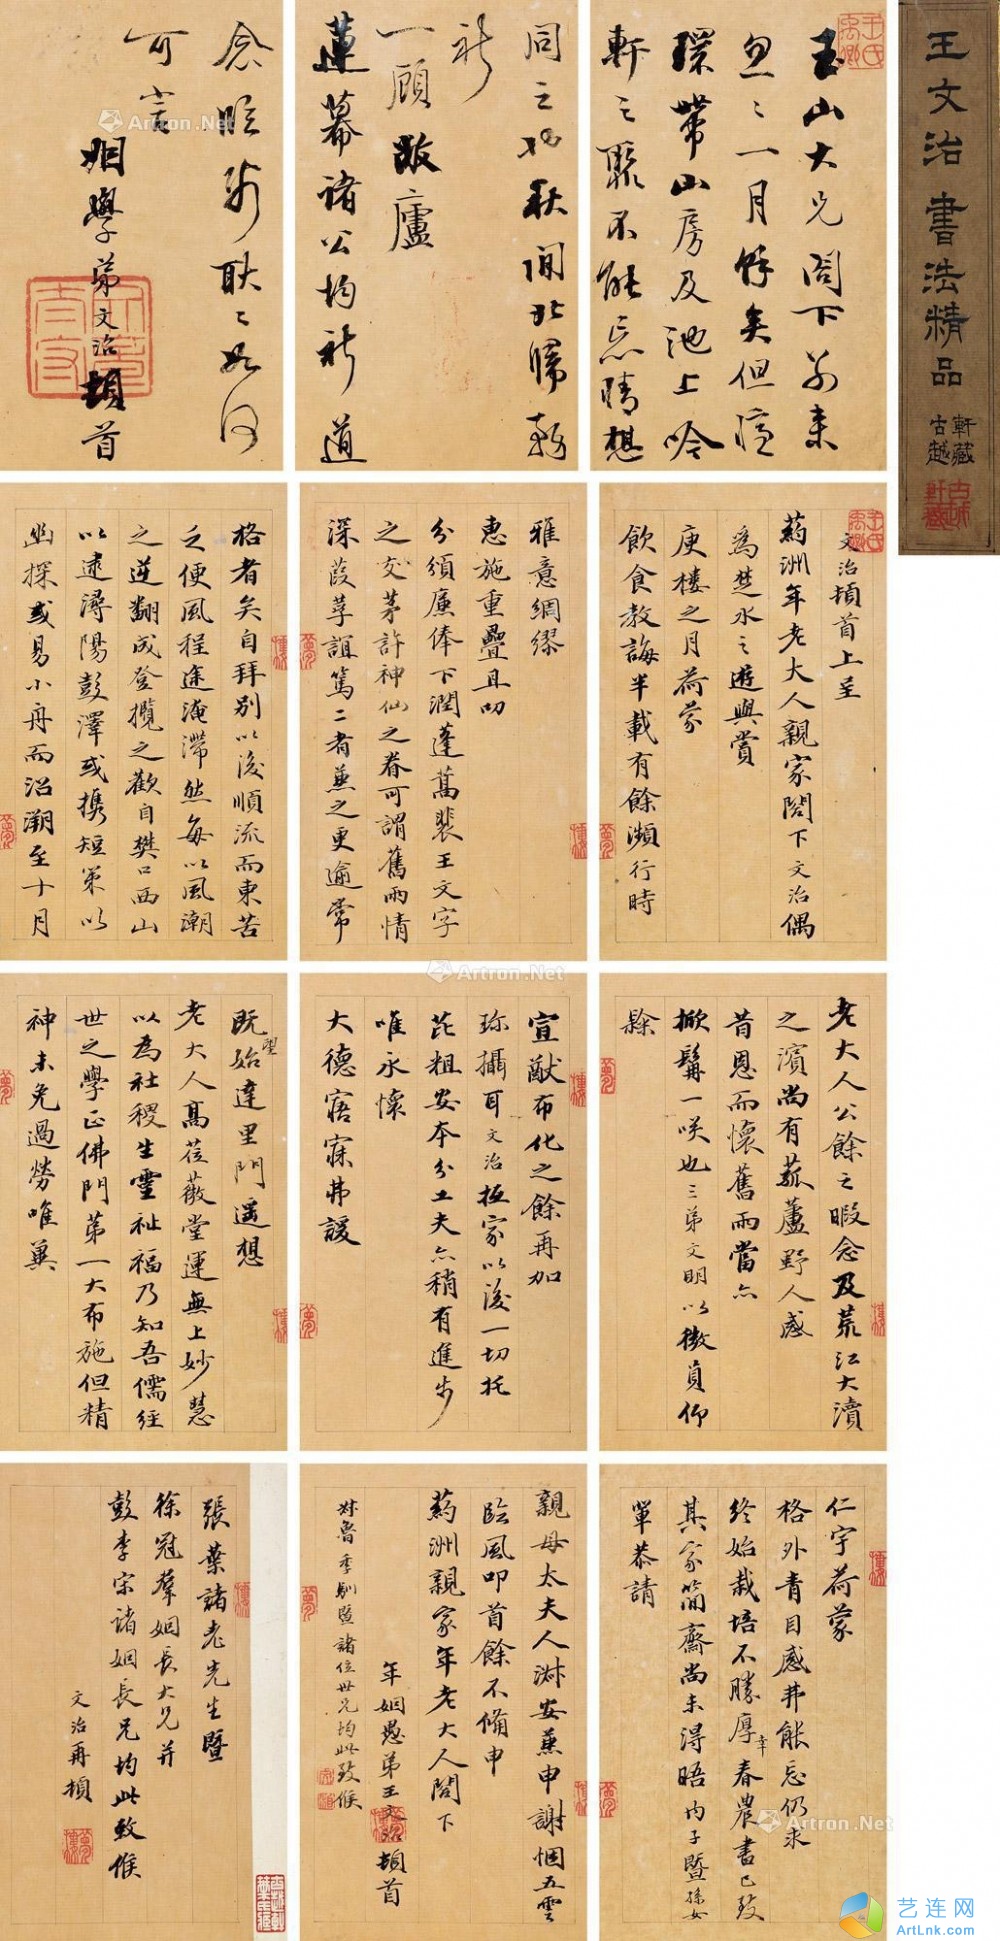 王文治書法精品
古越
軒藏
玉山大兄閣下別来
忽忽一月餘矣但憶
環帶山房及池上吟
軒之聚不能忘情想
同之也秋间北歸務
祈
一顧敝廬
蓮幕諸公均祈道
念臨穎耿耿如何
可言
姻學弟文治頓首
文治頓首上呈
葯洲年老大人親家閣下文治偶
為楚水之遊興賞
庾樓之月荷蒙
飲食教誨半載有餘瀕行時
雅意綢繆
惠施重疊且叨
分頒廉俸下潤蓬蒿裴王文字
之交茅許神仙之眷可謂舊雨情
深葭莩誼篤二者兼之更逾常
格者矣自拜别以後順流而東苦
乏便風程途淹滯然每以風潮
之逆翻成登攬之歡自樊口西山
以逮潯陽彭澤或携短策以
幽探或易小舟而沿溯至十月
既望始達里門遥想
老大人髙莅薇堂運無上妙慧
以為社稷生靈祉福乃知吾儒經
世之學正佛門第一大布施但精
神未免過勞唯冀
宣猷布化之餘再加
珎攝耳文治抵家以後一切托
芘粗安本分工夫亦稍有進步
唯永懷
大德寤寐弗諼
老大人公餘之暇念及荒江大瀆
之濱尚有菰蘆野人感
昔恩而懷舊雨當亦
掀髯一咲也三弟文明以微員仰
隸
仁宇荷蒙
格外青目感弗能忘仍求
终始栽培不勝厚幸春農書已致
其家簡齋尚未得晤内子暨孫女
單恭請
親母太夫人淑安蕙申謝悃五雲
臨風叩首餘不備申
葯洲親家年老大人閣下
年姻愚弟王文治頓首
對魯季馴暨諸位世兄均此致候
張葉諸老先生暨
徐冠羣姻長大兄并
彭李宋諸姻長兄均此致候
文治再頓
Artron.Net
Artron.Net
Artron.Net
Artron.Net
艺连网
ArtLnk.com